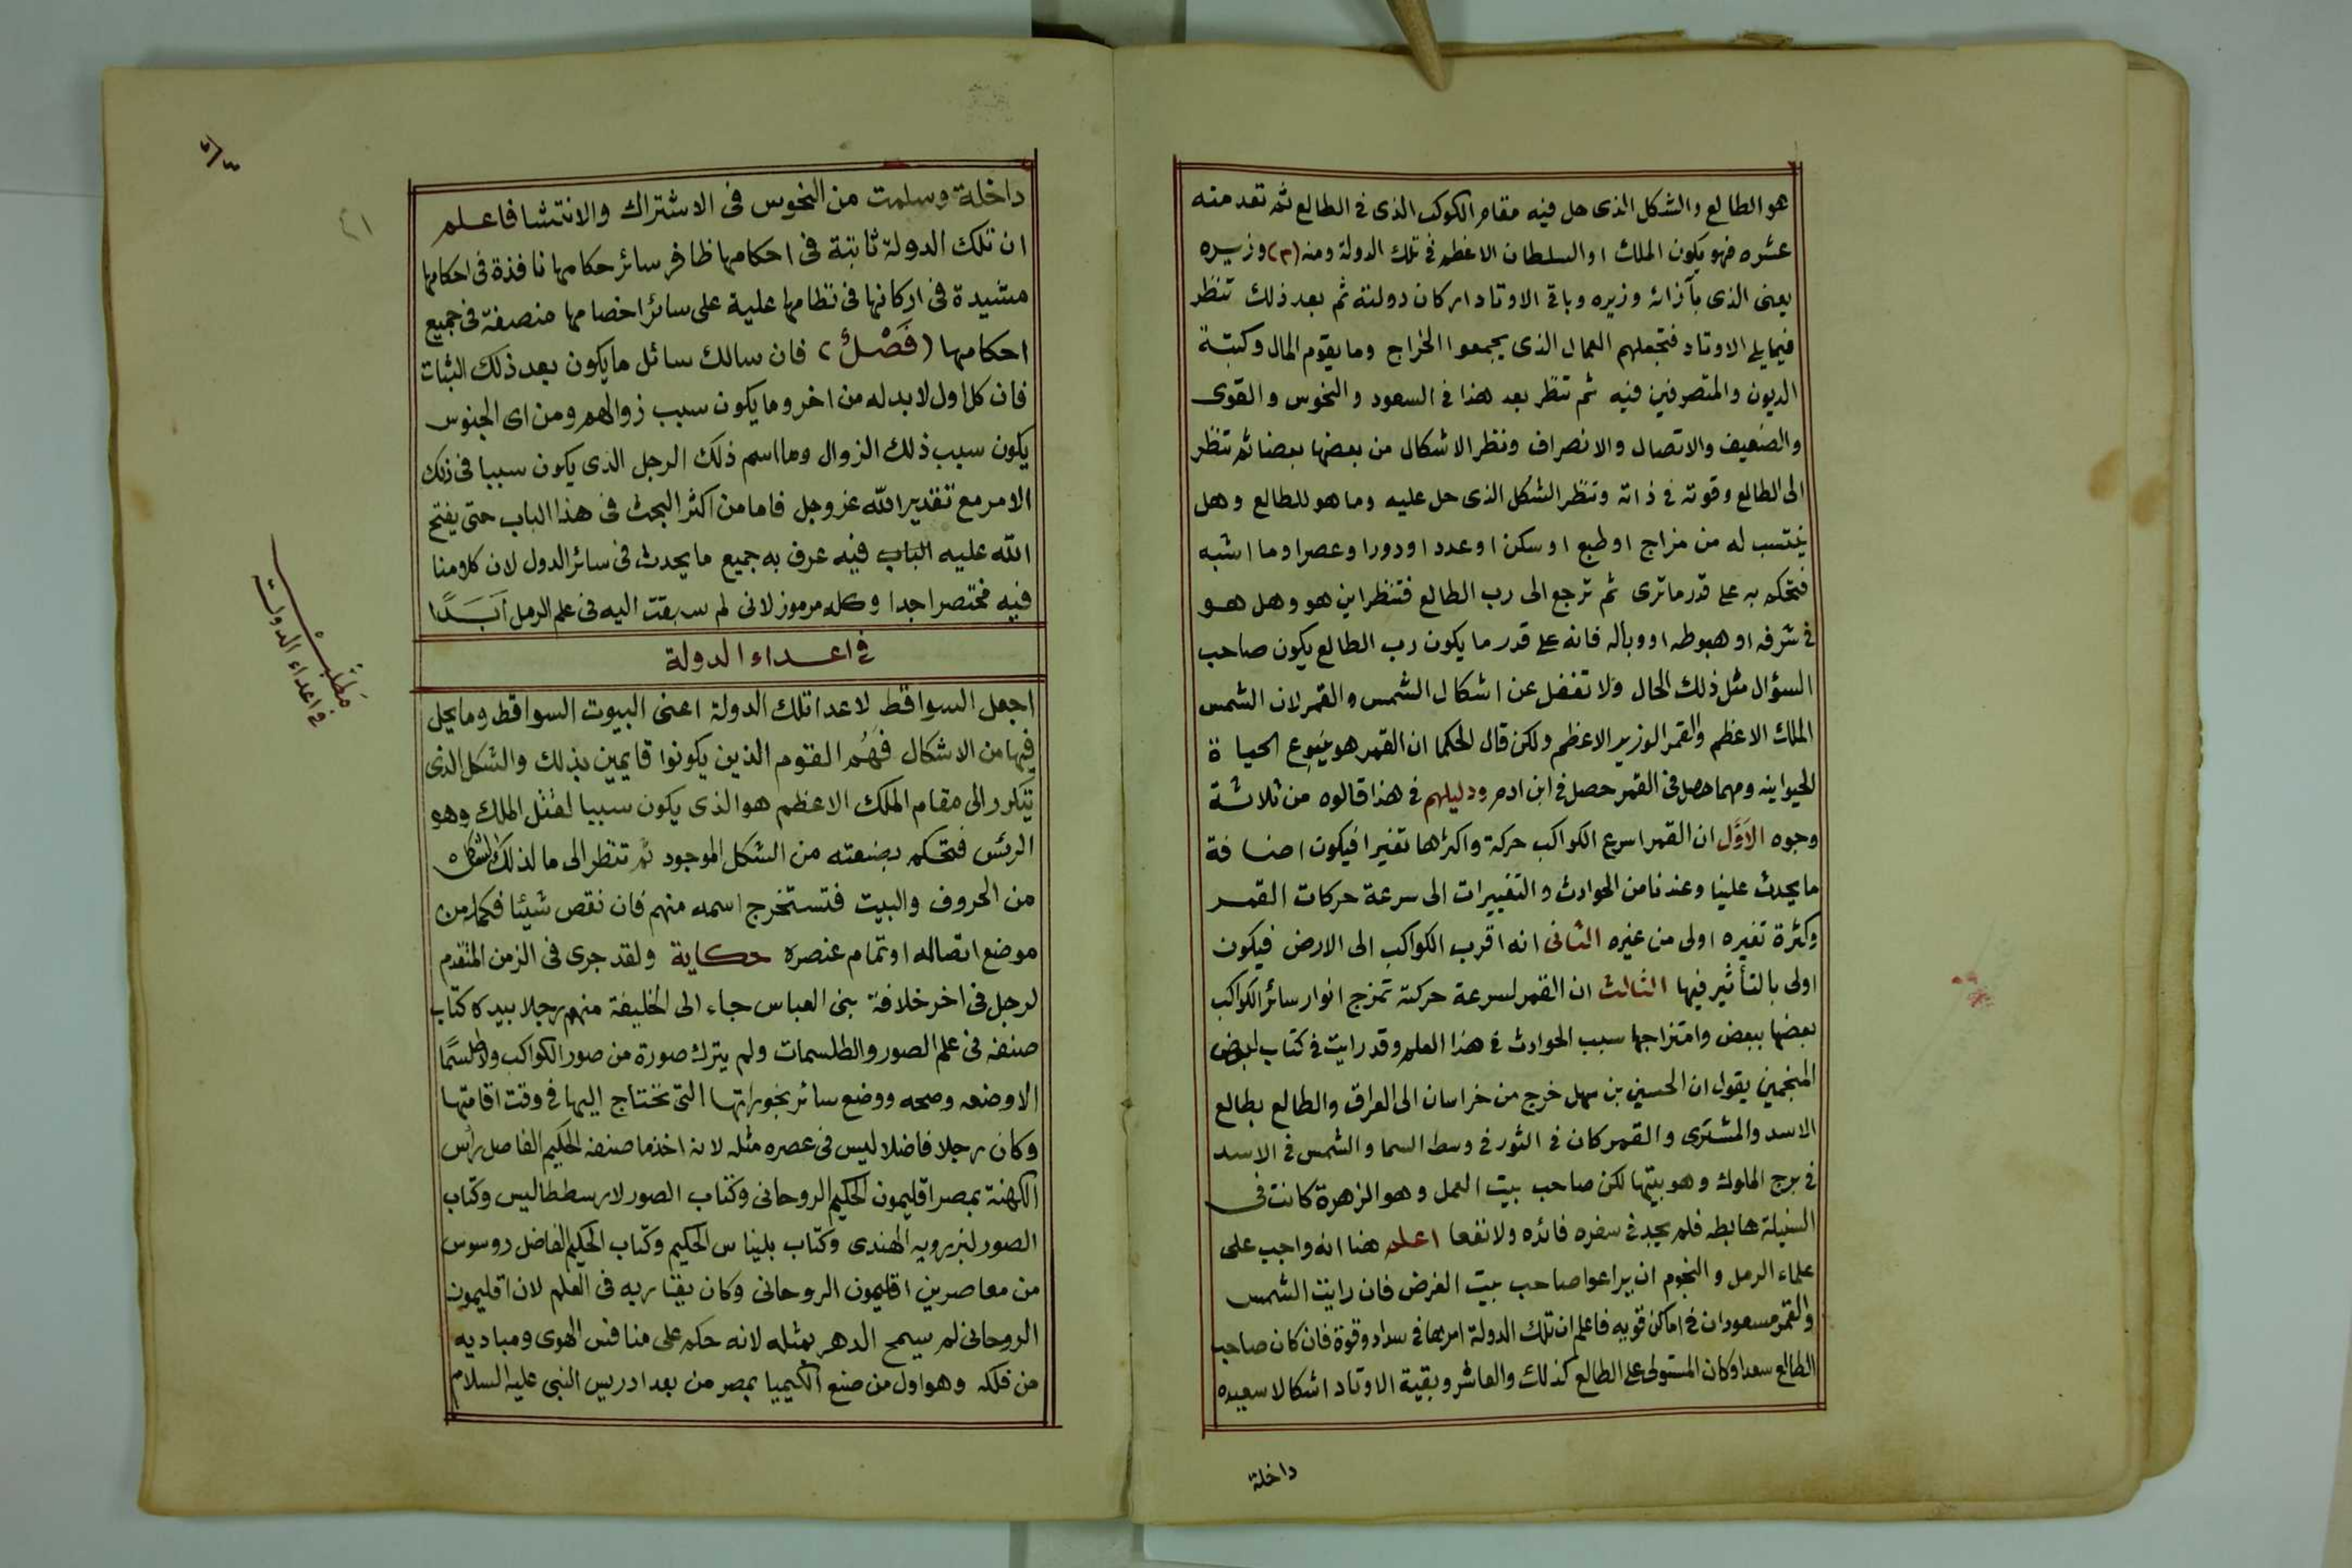 هو الطالع والشكل الذى حل فيه مقام الكوكب الذى فى الطالع ثم تعد منه
عشره فهو يكون الملك او السلطان الاعظم فى تلك الدولة ومنه (٣) وزيره
يعنى الذى بآزائه وزيره وباقى الاوتاد اركان دولته ثم بعد ذلك تنظر
فيما يلى الاوتاد فتجعلهم العمال الذى يجمعوا الخراج وما يقوم المال وكتبة
الديون والمتصرفين فيه ثم تنظر بعد هذا فى السعود والنحوس والقوى
والضعيف والاتصال والانصراف ونظر الاشكال من بعضها بعضا ثم تنظر
الى الطالع وقوته فى ذاته وتنظر الشكل الذى حل عليه وما هو للطالع وهل
ينتسب له من مزاج او طبع او سكن او عدد او دورا وعصرا وما اشبه
فتحكم به على قدر ما ترى ثم ترجع الى رب الطالع فتنظر اين هو وهل هو
فى شرفه او هبوطه او وباله فانه على قدر ما يكون رب الطالع يكون صاحب
السؤال مثل ذلك الحال ولا تغفل عن اشكال الشمس والقمر لان الشمس
الملك الاعظم والقمر الوزير الاعظم ولكن قال الحكما ان القمر هو ينبوع الحياة
الحيوانيه ومهما حصل فى القمر حصل فى ابن ادم ودليلهم فى هذا قالوه من ثلاثة
وجوه الاَوَّل ان القمر اسرع الكواكب حركة واكثرها تغيرا فيكون اضافة
ما يحدث علينا وعندنا من الحوادث والتغييرات الى سرعة حركات القمر
وكثرة تغيره اولى من غيره الثانى انه اقرب الكواكب الى الارض فيكون
اولى بالتأثير فيها الثالث ان القمر لسرعة حركته تمزج انوار سائر الكواكب
بعضها ببعض وامتزاجها سبب الحوادث فى هذا العلم وقد رايت فى كتاب لبعض
المنجمين يقول ان الحسين بن سهل خرج من خراسان الى العراق والطالع بطالع
الاسد والمشترى والقمر كان فى الثور فى وسط السما والشمس فى الاسد
فى برج الملوك وهو بيتها لكن صاحب بيت العمل وهو الزهرة كانت فى
السنبلة هابطه فلم يجد فى سفره فائده ولا نفعا اعلم هنا انه واجب على
علماء الرمل والنجوم ان يراعوا صاحب بيت الغرض فان رايت الشمس
والقمر مسعودان فى اماكن قويه فاعلم ان تلك الدولة امرها فى سداد وقوة فان كان صاحب
الطالع سعدا وكان المستولى على الطالع كذلك والعاشر وبقية الاوتاد اشكالا سعيده
داخلة
داخلة وسلمت من النحوس فى الاشتراك والانتشا فاعلم
ان تلك الدولة ثابتة فى احكامها ظافر سائر حكامها نافذة فى احكامها
مشيدة فى اركانها فى نظامها علية على سائر اخصامها منصفة فى جميع
احكامها (فَصْلٌ) فان سالك سائل ما يكون بعد ذلك الثبات
فان كل اول لا بد له من اخر وما يكون سبب زوالهم ومن اى الجنوس
يكون سبب ذلك الزوال وما اسم ذلك الرجل الذى يكون سببا فى ذلك
الامر مع تقدير الله عز وجل فاما من اكثر البحث فى هذا الباب حتى يفتح
الله عليه الباب فيه عرف به جميع ما يحدث فى سائر الدول لان كلامنا
فيه مختصرا جدا وكله مرموز لانى لم سبقت اليه فى علم الرمل اَبَدًا
فى اعداء الدولة
اجعل السواقط لاعدا تلك الدولة اعنى البيوت السواقط وما يحل
فيها من الاشكال فَهُم القوم الذين يكونوا قايمين بذلك والشكل الذى
يتكرر الى مقام الملك الاعظم هو الذى يكون سببا لقتل الملك وهو
الرئس فتحكم بصنعته من الشكل الموجود ثم تنظر الى ما لذلك الشكل
من الحروف والبيت فتستخرج اسمه منهم فان نقص شيئا فكمله من
موضع اتصاله او تمام عنصره حكاية ولقد جرى فى الزمن المتقدم
لرجل فى اخر خلافة بنى العباس جاء الى الخليفة منهم رجلا بيده كتاب
صنفه فى علم الصور والطلسمات ولم يترك صورة من صور الكواكب ولا طلسمًا
الا وضعه وصحه ووضع سائر بخوراتها التى تحتاج اليها فى وقت اقامتها
وكان رجلا فاضلا ليس فى عصره مثله لانه اخذ ما صنفه الحكيم الفاضل راس
الكهنة بمصر اقليمون الحكيم الروحانى وكتاب الصور لارسططاليس وكتاب
الصور لنبرويه الهندى وكتاب بليناس الحكيم وكتاب الحكيم الفاضل روسوس
من معاصرين اقليمون الروحانى وكان يقاربه فى العلم لان اقليمون
الروحانى لم يسمح الدهر بمثله لانه حكم على منافس الهوى ومباديه
من فلكه وهو اول من صنع الكيميا بمصر من بعد ادريس النبى عليه السلام
مَطْلَبْ
فى اعداء الدولت
٤١